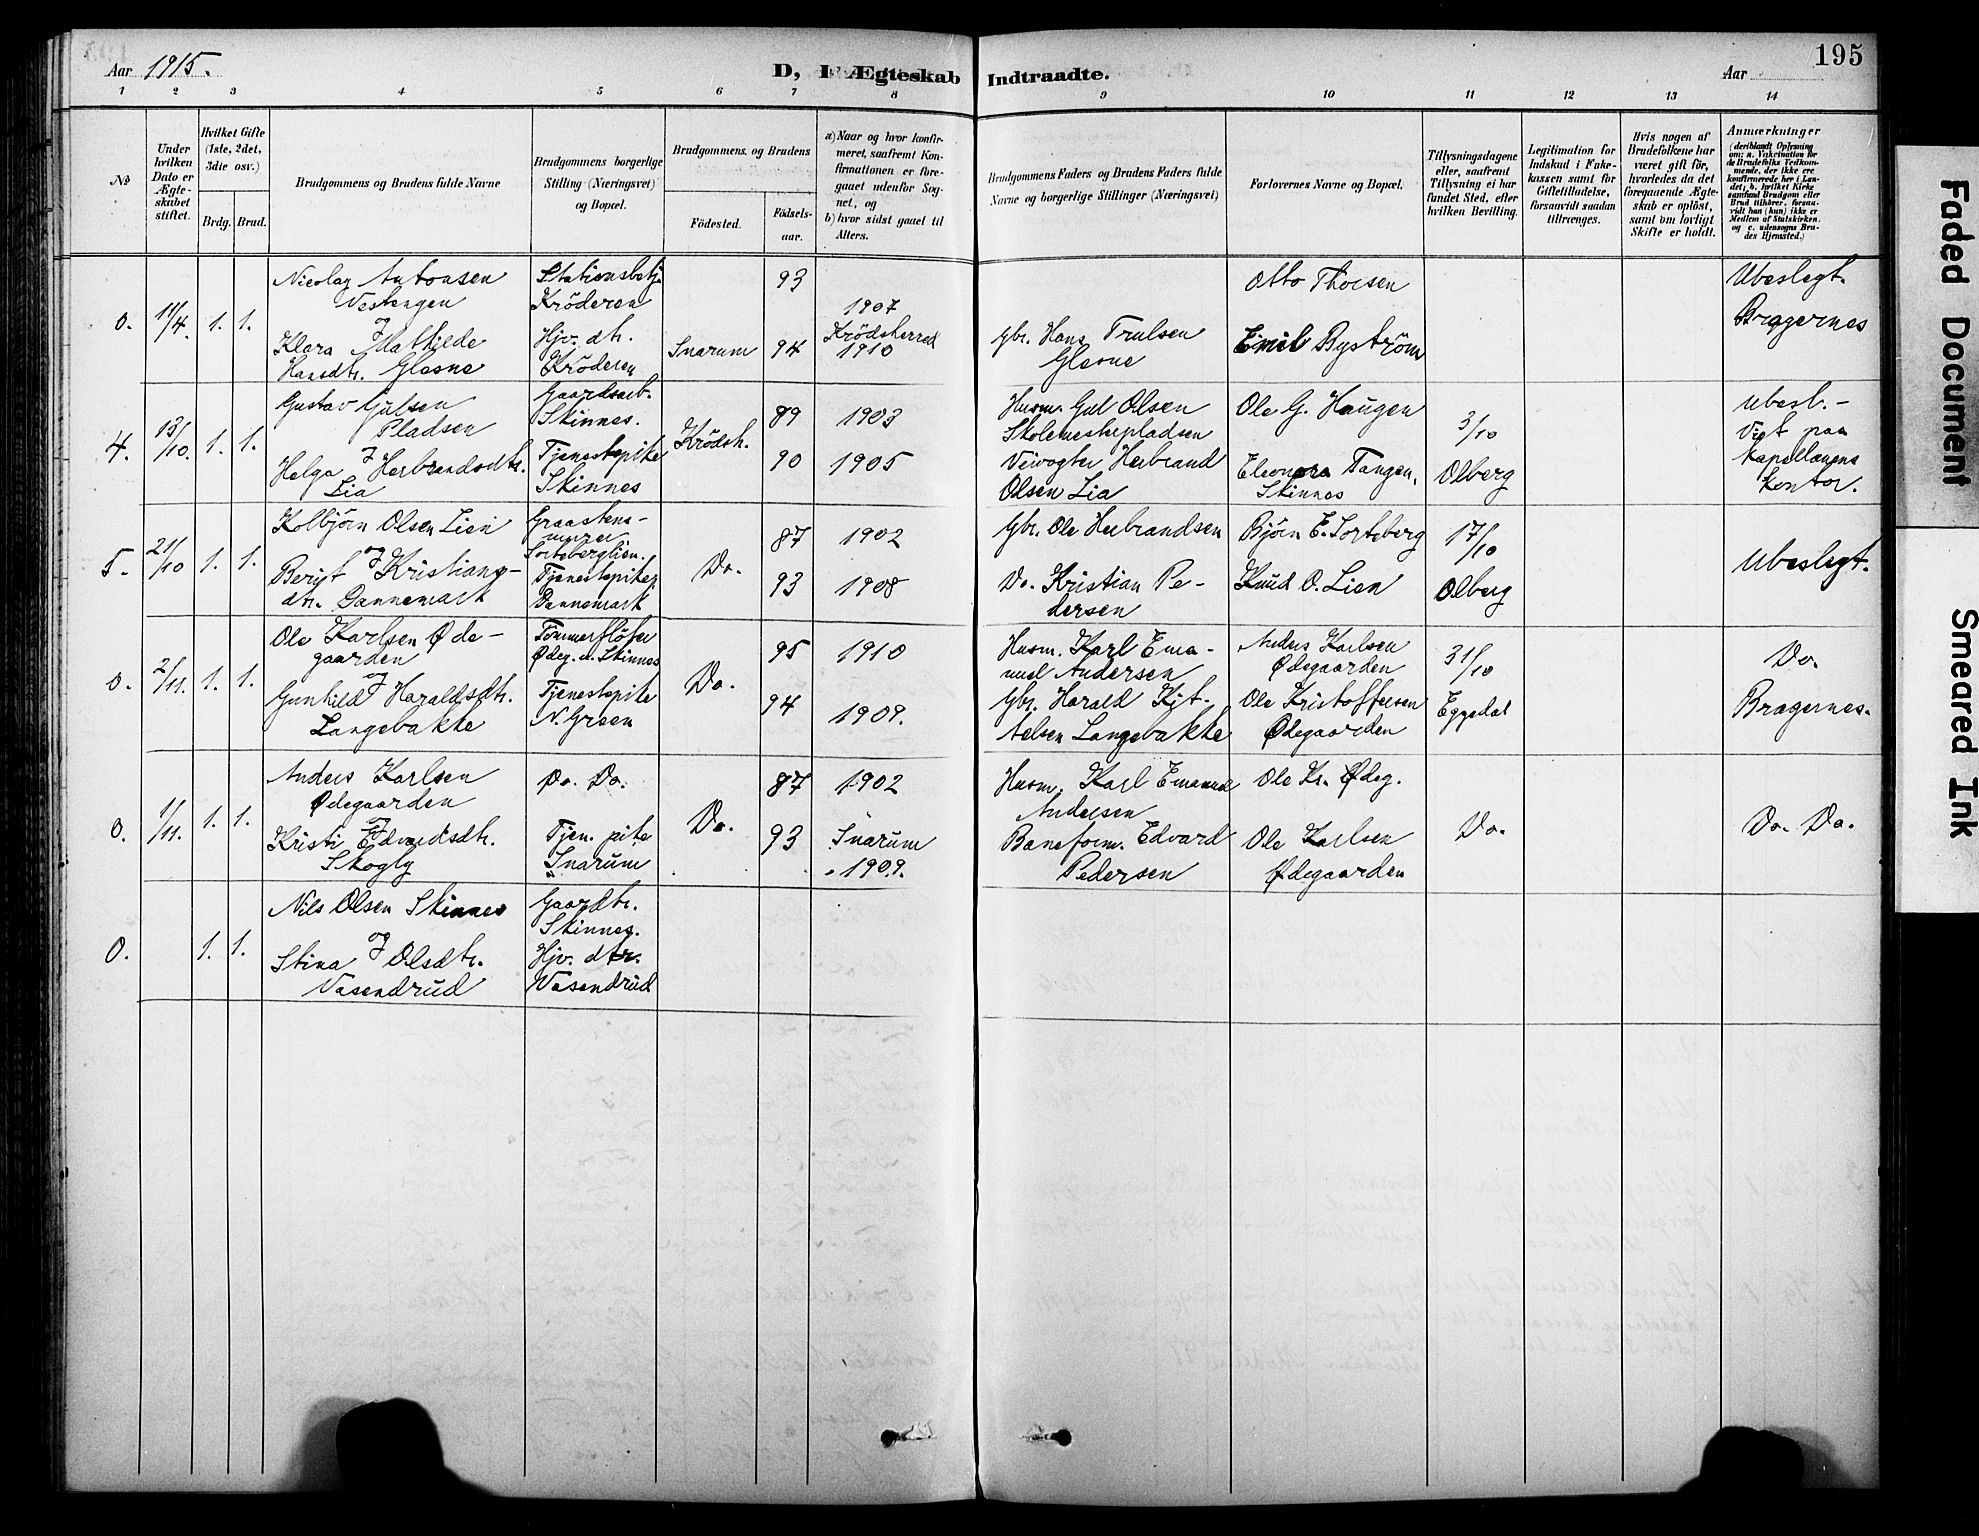 Aar 1915.
D, I Ægteskab Indtraadte.
Aar
195
1 2 3 4 5 6 7 8 9 10 11 12 13 14
No
Under hvilken Dato er Ægteskabet stiftet.
Hvilket Gifte (1ste, 2det, 3die osv.)
Brdg. Brud.
Brudgommens og Brudens fulde Navne
Brudgommens borgerlige Stilling (Næringsvei) og Bopæl.
Brudgommens og Brudens
Födested.
Födselsaar.
a) Naar og hvor konfirmeret, saafremt Konfirmationen er foregaaet udenfor Sognet, og
b) hvor sidst gaaet til Alters.
Brudgommens Faders og Brudens Faders fulde Navne og borgerlige Stillinger (Næringsvei)
Forlovernes Navne og Bopæl.
Tillysningsdagene eller, saafremt Tillysning ei har fundet Sted, efter hvilken Bevilling.
Legitimation for Indskud i Enkekassen samt for Giftetilladelse, forsaavidt saadan tiltrænges.
Hvis nogen af Brudefolkene har været gift för, hvorledes da det foregaaende Ægteskab er oplöst, samt om lovligt Skifte er holdt.
Anmærkninger (deriblandt Oplysning om: a. Vakcination for de Brudefolks Vedkommende, der ikke ere konfirmerede her i Landet; b. hvilket Kirkesamfund Brudgom eller Brud tilhörer, forsaavidt han (hun) ikke er Medlem af Statskirken, og c. udensogns Brudes Hjemsted.)
0. 11/4. 1. 1.
Nicolay Antonsen
Vestengen
og
Klara Mathilde
Hansdtr. Glesne
Stationsbetj.
Kröderen
Hjv. dtr.
Kröderen
Snarum
93
94
1907
Krödsherred
1910
Gbr. Hans Trulsen
Glesne
Otto Thorsen
Emil Byström
Ubeslegt.
Bragernes
4. 13/10. 1. 1.
Gustav Gulsen
Pladsen
og
Helga Herbrandsdtr.
Lia
Gaardsarb.
Skinnes.
Tjenestepike
Skinnes
Krödsh.
89
90
1903
1905
Husm. Gul Olsen
Skolemesterpladsen
Veivogter Herbrand
Olsen Lia
Ole G. Haugen
Eleonora Tangen,
Skinnes
3/10
Olberg
Ubesl. -
Viet paa
Kapellanens
Kontor.
5. 21/10 1. 1.
Kolbjörn Olsen Lien
og
Berigt Kristians-
dtr. Dannemark
Graastens-
murer
Sorteberglien.
Tjenestepike
Dannemark
Do.
87
93
1902
1908
Gbr. Ole Herbrandsen
Do. Kristian Pe-
dersen
Bjørn E. Sorteberg
Knud O. Lien
17/10
Olberg
Ubeslegt.
0. 2/11. 1. 1.
Ole Karlsen Øde-
gaarden
og
Gunhild Haraldsdtr.
Langebakke
Tömmerflöter
Ødeg. u. Skinnes
Tjenestepike
N. Green
Do.
95
94
1910
1909.
Husm. Karl Ema-
nuel Andersen
Gbr. Harald Kjt-
telsen Langebakke
Anders Karlsen
Ødegaarden
Ole Kristoffersen
Ødegaarden
31/10
Eggedal
Do.
Bragernes.
0. 1/11. 1. 1.
Anders Karlsen
Ødegaarden
og
Kristi Edvardsdtr.
Skogly
Do. Do.
Tjen. pike
Snarum
Do.
87
93
1902
Snarum
1909.
Husm. Karl Emanuel
Andersen
Baneform. Edvard
Pedersen
Ole Kr. Ødeg.
Ole Karlsen
Ødegaarden
Do.
Do. Do.
0. 1. 1.
Nils Olsen Skinnes
og
Stina Olsdtr.
Vasendrud
Gaardbr.
Skinnes.
Hjv. dtr.
Vasendrud
Faded Document
Smeared Ink